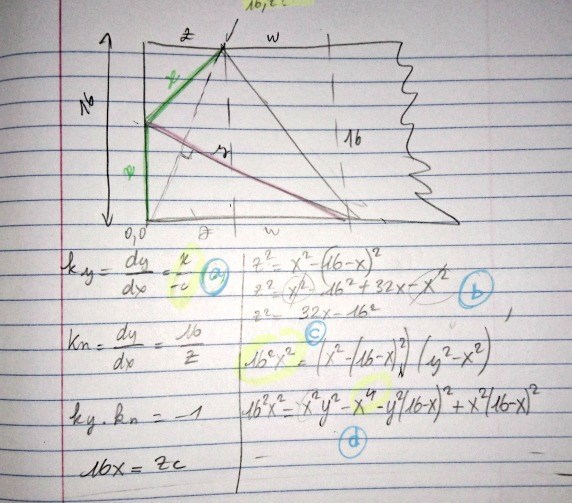 16,zc
z w
x
16
y
16
x
0,0 z w
ky = dy/dx = x/-c (a)
kn = dy/dx = 16/z
ky . kn = -1
16x = zc
z² = x² - (16-x)²
z² = x² - 16² + 32x - x² (b)
z² = 32x - 16²
(c)
16²x² = (x² - (16-x)²)(y² - x²)
16²x² = x²y² - x⁴ - y²(16-x)² + x²(16-x)²
(d)